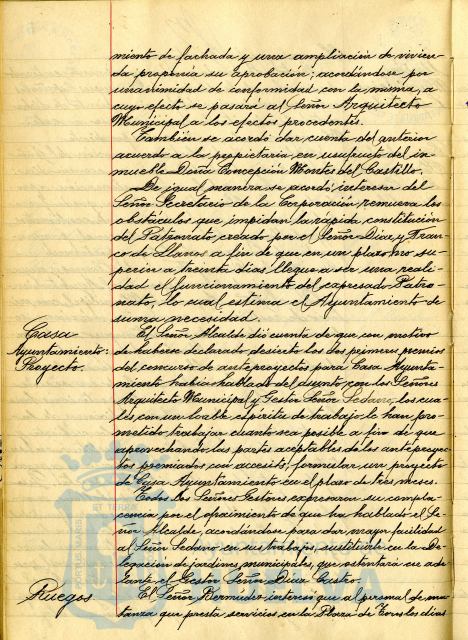 miento de fachada y una ampliación de vivien-
da proponía su aprobación; acordándose por
unanimidad de conformidad con la misma, a
cuyo efecto se pasará al Señor Arquitecto
Municipal a los efectos procedentes.
También se acordó dar cuenta del anterior
acuerdo a la propietaria, en usufructo del in-
mueble Doña Concepción Montes del Castillo.
De igual manera se acordó interesar del
Señor Secretario de la Corporación remueva los
obstáculos que impidan la rápida constitución
del Patronato creado por el Señor Diaz y Fran-
co de Llanos a fin de que en un plazo no su-
perior a treinta dias llegue a ser una reali-
dad el funcionamiento del expresado Patro-
nato, lo cual estima el Ayuntamiento de
suma necesidad.
Casa
Ayuntamiento:
Proyecto.
El Señor Alcalde dió cuenta de que con motivo
de haberse declarado desierto los dos primeros premios
del concurso de anteproyectos para Casa Ayunta-
miento habia hablado del asunto con los Señores
Arquitecto Municipal y Gestor Señor Sedano, los cua-
les con un loable espíritu de trabajo le han pro-
metido trabajar cuanto sea posible a fin de que
aprovechando las partes aceptables de los anteproyec-
tos premiados con accesits, formular un proyecto
de Casa Ayuntamiento en el plazo de tres meses.
Todos los Señores Gestores expresaron su compla-
cencia por el ofrecimiento de que ha hablado el Se-
ñor Alcalde, acordándose para dar mayor facilidad
al Señor Sedano en sus trabajos, sustituirle en la De-
legación de jardines municipales, que ostentará en ade-
lante el Gestor Señor Diaz Castro.
Ruegos
El Señor Bermúdez interesó que al personal de ma-
tanza que presta servicios en la Plaza de Toros los dias